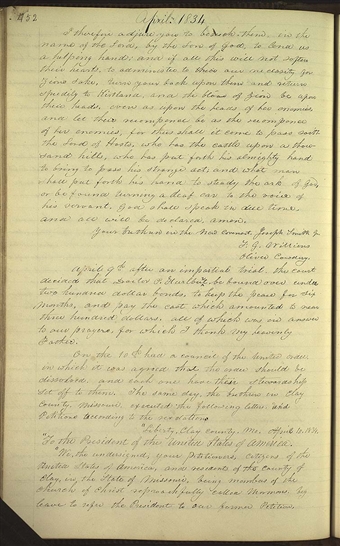 452
April. 1834
I therefore adjure you to beseech them, in the
name of the Lord, by the Son of God, to lend us
a helping hand; and if all this will not soften
their hearts to administer to thee our necessity for
Zions sake, turn your back upon them and return
speedily to Kirtland, and the blood of Zion be upon
their heads, even as upon the heads of her enemies
and let their recompence be as the recompence
of her enemies, for thus shall it come to pass saith
the Lord of Hosts, who has the cattle upon a thou-
sand hills, who has put forth his almighty hand
to bring to pass his strange act; and what man
shall put forth his hand to steady the ark of God,
or be found turning a deaf ear to the voice of
his servant. God shall speak in due time,
and all will be declared, amen.
Your brethren in the New covenant, Joseph Smith Jr
F. G. Williams
Oliver Cowdery.
April 9th after an impartial trial, the court
decided that Doctor P. Hurlbut, be bound over, under
two hundred dollars bonds, to keep the peace for six
months, and pay the cost, which amounted to near
three hundred dollars, all of which was in answer
to our prayers, for which I thank my heavenly
Father.
On the 10th had a council of the united order
in which it was agreed that the order should be
dissolved, and each one have their stewardship
set off to them. The same day, the brethren in Clay
County, Missouri, executed the following letter and
Petitions according to the revelations
"Liberty, Clay County, Mo. April 10. 1834.
To the President of the United States of America.
We, the undersigned, your petitioners, citizens of the
United States of America, and residents of the County of
Clay, in the State of Missouri, being members of the
church of Christ reproachfully called Mormons, beg
leave to refer the President to our former Petition